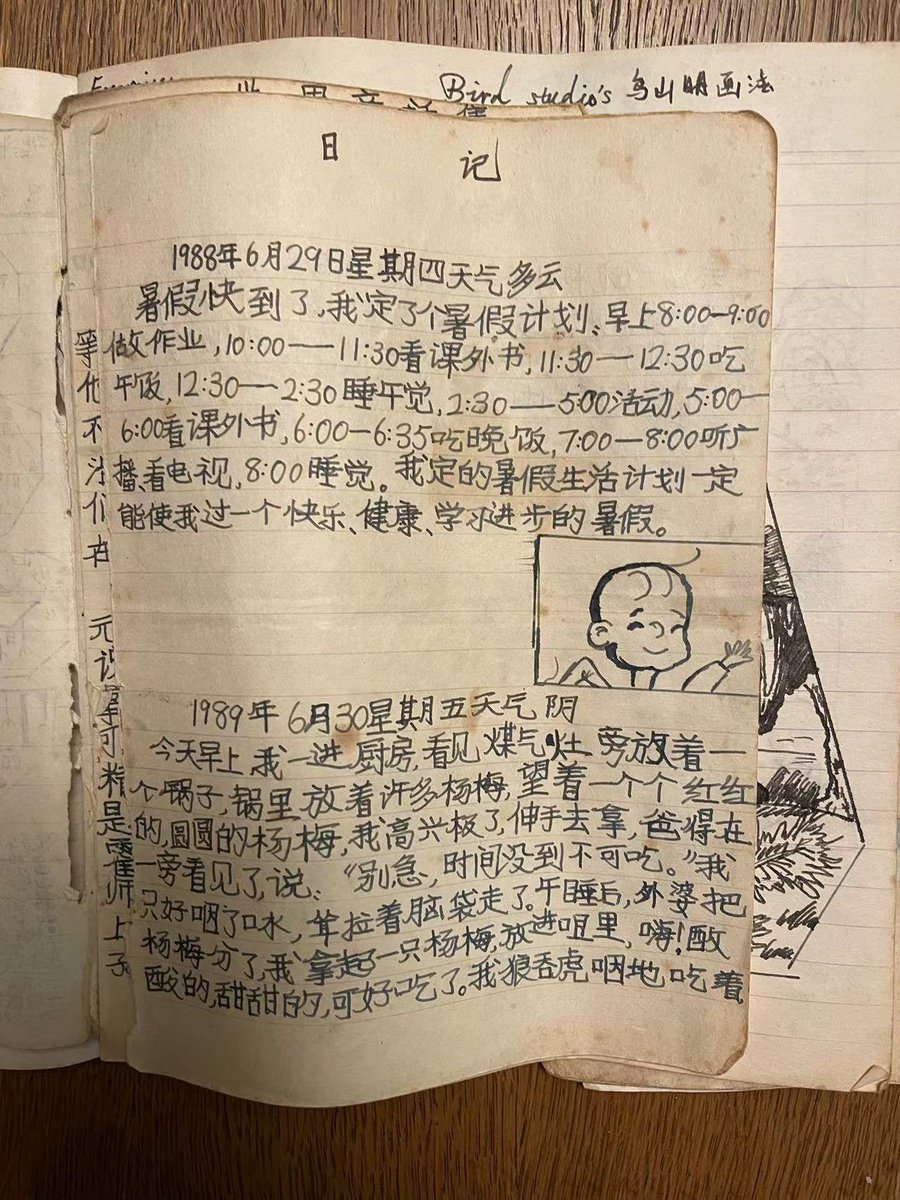 Bird studio's 鸟山明画法
日 记
1988年6月29日星期四天气多云
暑假快到了,我定了个暑假计划、早上8:00—9:00
做作业,10:00——11:30看课外书,11:30—12:30吃
午饭,12:30—2:30睡午觉,2:30——5:00活动,5:00—
6:00看课外书,6:00—6:35吃晚饭,7:00—8:00听广
播、看电视,8:00睡觉。我定的暑假生活计划一定
能使我过一个快乐、健康、学习进步的暑假。
1989年6月30星期五天气阴
今天早上,我一进厨房,看见煤气灶旁放着一
个锅子,锅里放着许多杨梅,望着一个个红红
的,圆圆的杨梅,我高兴极了,伸手去拿,爸得在
一旁看见了,说、“别急,时间没到不可吃。”我
只好咽了口水,耸拉着脑袋走了。午睡后,外婆把
杨梅分了,我拿起一只杨梅,放进咀里,嗨!酸
酸的,甜甜的,可好吃了。我狼吞虎咽地吃着